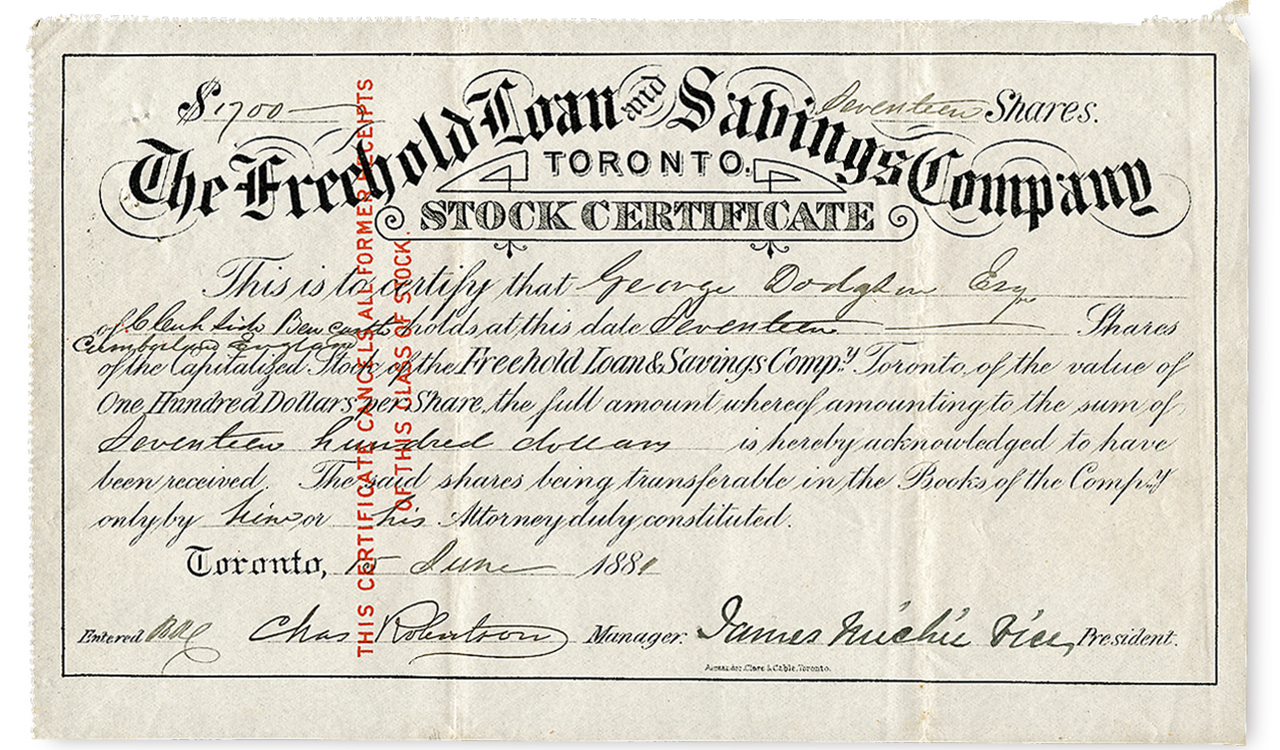 $ 1700 Seventeen Shares.
The Freehold Loan and Savings Company
TORONTO.
STOCK CERTIFICATE
This is to certify that George Dodgson Esqr
of Side holds at this date Seventeen Shares
Cumberland England
of the Capitalized Stock of the Freehold Loan & Savings Compy. Toronto, of the value of
One Hundred Dollars per Share, the full amount whereof amounting to the sum of
Seventeen hundred dollars is hereby acknowledged to have
been received. The said shares being transferable in the Books of the Compy
only by him or his Attorney duly constituted.
Toronto, 15 June 1881
Entered Chas Robertson Manager. James Michie Vice President.
Alexander, Clare & Cable, Toronto.
THIS CERTIFICATE CANCELS ALL FORMER RECEIPTS
OF THIS CLASS OF STOCK.